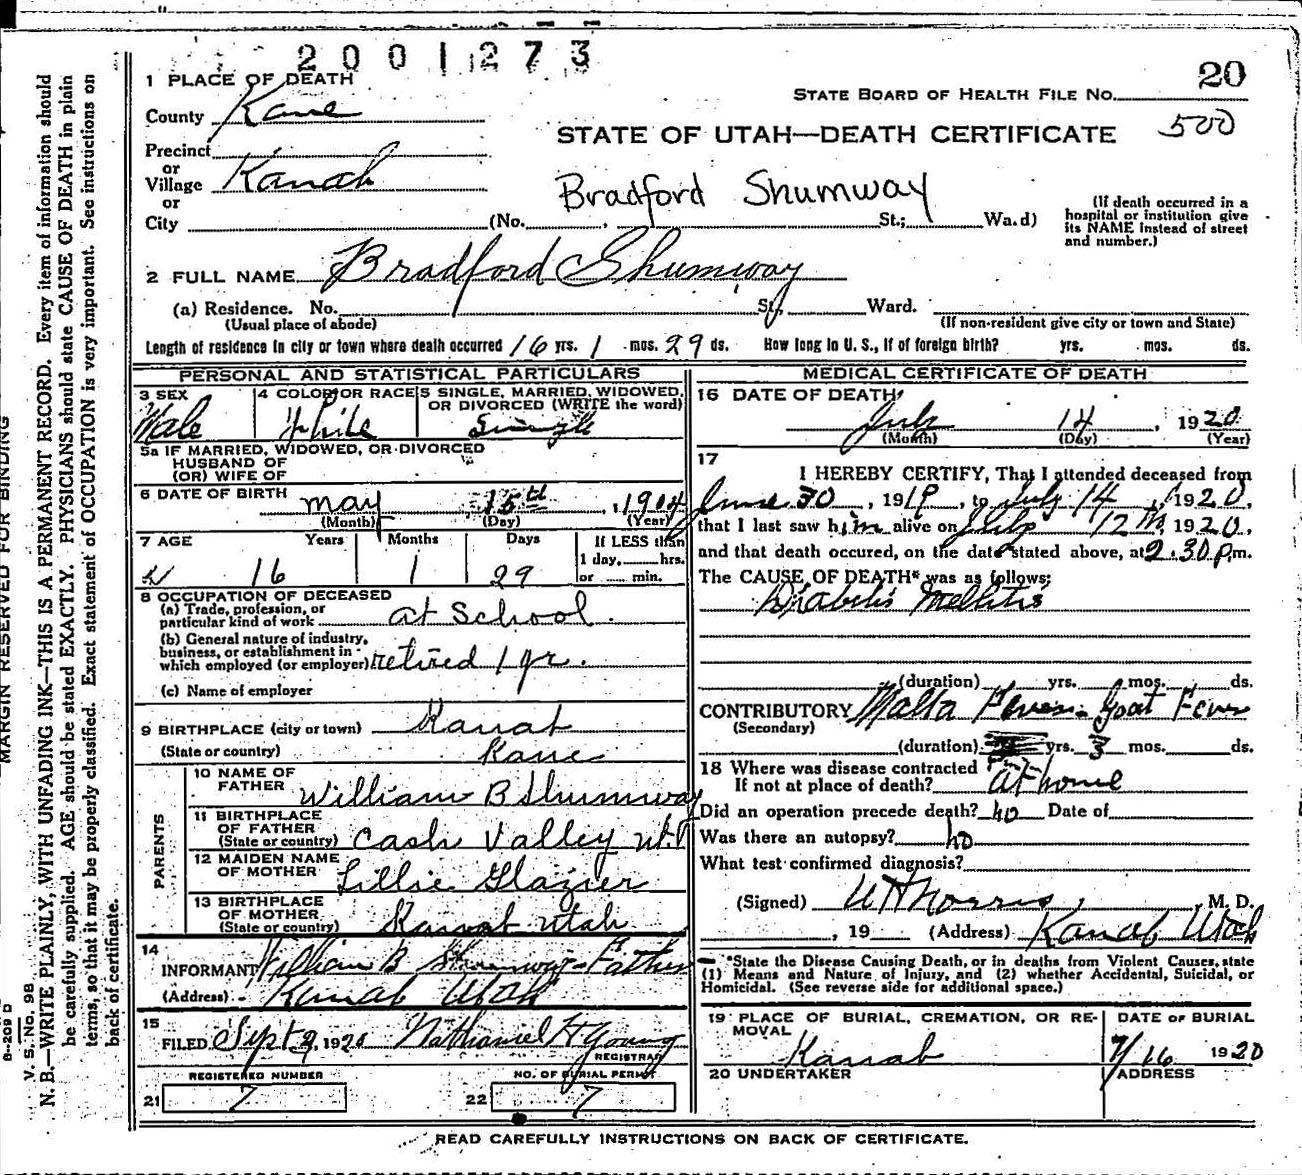 2001273
20
1 PLACE OF DEATH
STATE BOARD OF HEALTH FILE NO.
County Kane
500
STATE OF UTAH—DEATH CERTIFICATE
Precinct
or
Village Kanab
or
City
Bradford Shumway
(No. St.; Wa.d)
(If death occurred in a
hospital or institution give
its NAME instead of street
and number.)
2 FULL NAME Bradford Shumway
(a) Residence. No. St., Ward.
(Usual place of abode)
(If non-resident give city or town and State)
Length of residence in city or town where death occurred 16 yrs. 1 mos. 29 ds. How long in U. S., if of foreign birth? yrs. mos. ds.
PERSONAL AND STATISTICAL PARTICULARS
3 SEX
Male
4 COLOR OR RACE
White
5 SINGLE, MARRIED, WIDOWED,
OR DIVORCED (WRITE the word)
Single
5a IF MARRIED, WIDOWED, OR DIVORCED
HUSBAND OF
(OR) WIFE OF
6 DATE OF BIRTH May 15th, 1904
(Month) (Day) (Year)
7 AGE Years Months Days
16 1 29
If LESS than
1 day, hrs.
or min.
8 OCCUPATION OF DECEASED
(a) Trade, profession, or
particular kind of work at School
(b) General nature of industry,
business, or establishment in
which employed (or employer) retired 1 yr.
(c) Name of employer
9 BIRTHPLACE (city or town) Kanab
(State or country) Kane
PARENTS
10 NAME OF
FATHER William B Shumway
11 BIRTHPLACE
OF FATHER
(State or country) Cash Valley Ut.
12 MAIDEN NAME
OF MOTHER Lillie Glazier
13 BIRTHPLACE
OF MOTHER
(State or country) Kanab Utah
14
INFORMANT William B Shumway - Father
(Address) Kanab Utah
15
FILED Sept 9, 1920 Nathaniel H Young
REGISTRAR
REGISTERED NUMBER
21 7
NO. OF BURIAL PERMIT
22 7
MEDICAL CERTIFICATE OF DEATH
16 DATE OF DEATH
July 14, 1920
(Month) (Day) (Year)
17
I HEREBY CERTIFY, That I attended deceased from
June 30, 1919, to July 14, 1920,
that I last saw him alive on July 12th, 1920,
and that death occured, on the date stated above, at 2:30 p.m.
The CAUSE OF DEATH* was as follows:
Diabetis Mellitis
(duration) yrs. mos. ds.
CONTRIBUTORY Malta Fever - Goat Fever
(Secondary)
(duration) yrs. 3 mos. ds.
18 Where was disease contracted
If not at place of death? at home
Did an operation precede death? no Date of
Was there an autopsy? no
What test confirmed diagnosis?
(Signed) Norris, M. D.
, 19 (Address) Kanab Utah
*State the Disease Causing Death, or in deaths from Violent Causes, state
(1) Means and Nature of Injury, and (2) whether Accidental, Suicidal, or
Homicidal. (See reverse side for additional space.)
19 PLACE OF BURIAL, CREMATION, OR RE-
MOVAL
Kanab
DATE OF BURIAL
7/16 1920
20 UNDERTAKER
ADDRESS
READ CAREFULLY INSTRUCTIONS ON BACK OF CERTIFICATE.
MARGIN RESERVED FOR BINDING
B-209 D
V. S. No. 98
N. B.—WRITE PLAINLY, WITH UNFADING INK—THIS IS A PERMANENT RECORD. Every item of information should
be carefully supplied. AGE should be stated EXACTLY. PHYSICIANS should state CAUSE OF DEATH in plain
terms, so that it may be properly classified. Exact statement of OCCUPATION is very important. See instructions on
back of certificate.